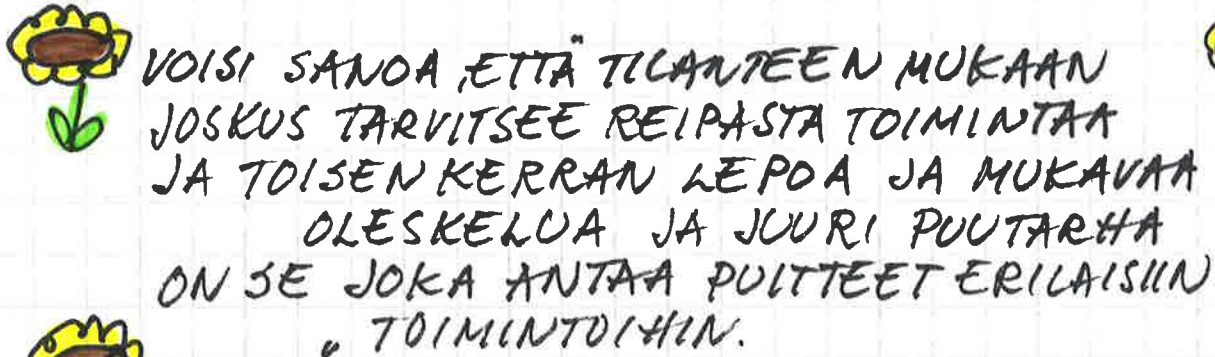 VOISI SANOA, ETTÄ TILANTEEN MUKAAN
JOSKUS TARVITSEE REIPASTA TOIMINTAA
JA TOISEN KERRAN LEPOA JA MUKAVAA
OLESKELUA JA JUURI PUUTARHA
ON SE JOKA ANTAA PUITTEET ERILAISIIN
TOIMINTOIHIN.